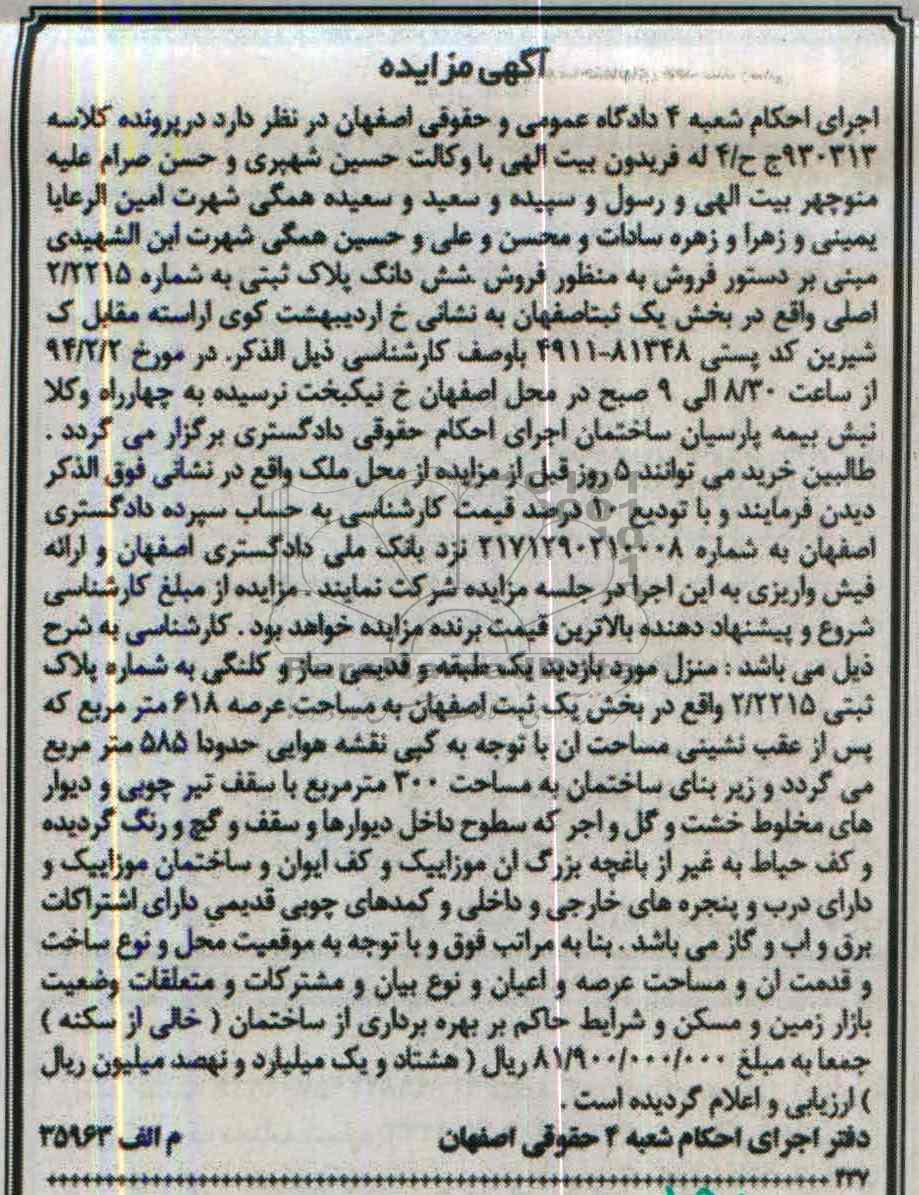 آگهی مزایده
اجرای احکام شعبه ۴ دادگاه عمومی و حقوقی اصفهان در نظر دارد درپرونده کلاسه
۹۳۰۳۱۳ج ح/۴ له فریدون بیت الهی با وکالت حسین شهپری و حسن صرام علیه
منوچهر بیت الهی و رسول و سپیده و سعید و سعیده همگی شهرت امین الرعایا
یمینی و زهرا و زهره سادات و محسن و علی و حسین همگی شهرت ابن الشهیدی
مبنی بر دستور فروش به منظور فروش شش دانگ پلاک ثبتی به شماره ۲/۲۲۱۵
اصلی واقع در بخش یک ثبتاصفهان به نشانی خ اردیبهشت کوی اراسته مقابل ک
شیرین کد پستی ۸۱۳۴۸-۴۹۱۱ باوصف کارشناسی ذیل الذکر. در مورخ ۹۴/۲/۲
از ساعت ۸/۳۰ الی ۹ صبح در محل اصفهان خ نیکبخت نرسیده به چهارراه وکلا
نبش بیمه پارسیان ساختمان اجرای احکام حقوقی دادگستری برگزار می گردد .
طالبین خرید می توانند ۵ روز قبل از مزایده از محل ملک واقع در نشانی فوق الذکر
دیدن فرمایند و با تودیع ۱۰ درصد قیمت کارشناسی به حساب سپرده دادگستری
اصفهان به شماره ۲۱۷۱۲۹۰۲۱۰۰۰۸ نزد بانک ملی دادگستری اصفهان و ارائه
فیش واریزی به این اجرا در جلسه مزایده شرکت نمایند . مزایده از مبلغ کارشناسی
شروع و پیشنهاد دهنده بالاترین قیمت برنده مزایده خواهد بود . کارشناسی به شرح
ذیل می باشد : منزل مورد بازدید یک طبقه و قدیمی ساز و کلنگی به شماره پلاک
ثبتی ۲/۲۲۱۵ واقع در بخش یک ثبت اصفهان به مساحت عرصه ۶۱۸ متر مربع که
پس از عقب نشینی مساحت ان با توجه به کپی نقشه هوایی حدودا ۵۸۵ متر مربع
می گردد و زیر بنای ساختمان به مساحت ۳۰۰ مترمربع با سقف تیر چوبی و دیوار
های مخلوط خشت و گل و اجر که سطوح داخل دیوارها و سقف و گچ و رنگ گردیده
و کف حیاط به غیر از باغچه بزرگ ان موزاییک و کف ایوان و ساختمان موزاییک و
دارای درب و پنجره های خارجی و داخلی و کمدهای چوبی قدیمی دارای اشتراکات
برق و اب و گاز می باشد . بنا به مراتب فوق و با توجه به موقعیت محل و نوع ساخت
و قدمت ان و مساحت عرصه و اعیان و نوع بیان و مشترکات و متعلقات وضعیت
بازار زمین و مسکن و شرایط حاکم بر بهره برداری از ساختمان ( خالی از سکنه )
جمعا به مبلغ ۸۱/۹۰۰/۰۰۰/۰۰۰ ریال ( هشتاد و یک میلیارد و نهصد میلیون ریال
) ارزیابی و اعلام گردیده است .
دفتر اجرای احکام شعبه ۴ حقوقی اصفهان م الف ۳۵۹۶۳
۲۳۷